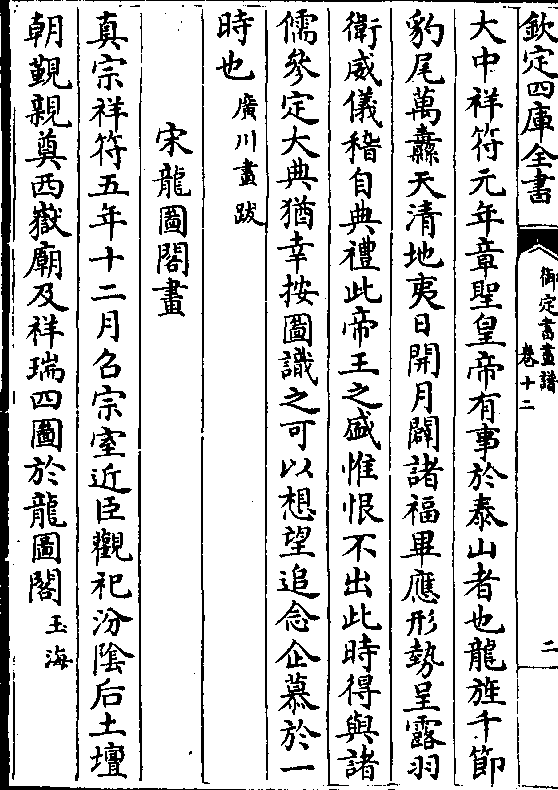 欽定四庫全書
御定書畫譜
卷十二
二
大中祥符元年章聖皇帝有事於泰山者也龍旌千節
豹尾萬纛天清地夷日開月闢諸福畢應形勢呈露羽
衛威儀稽自典禮此帝王之盛惟恨不出此時得與諸
儒參定大典猶幸按圖識之可以想望追念企慕於一
時也廣川畫跋
宋龍圖閣畫
真宗祥符五年十二月召宗室近臣觀祀汾陰后土壇
朝覲親奠西嶽廟及祥瑞四圖於龍圖閣玉海